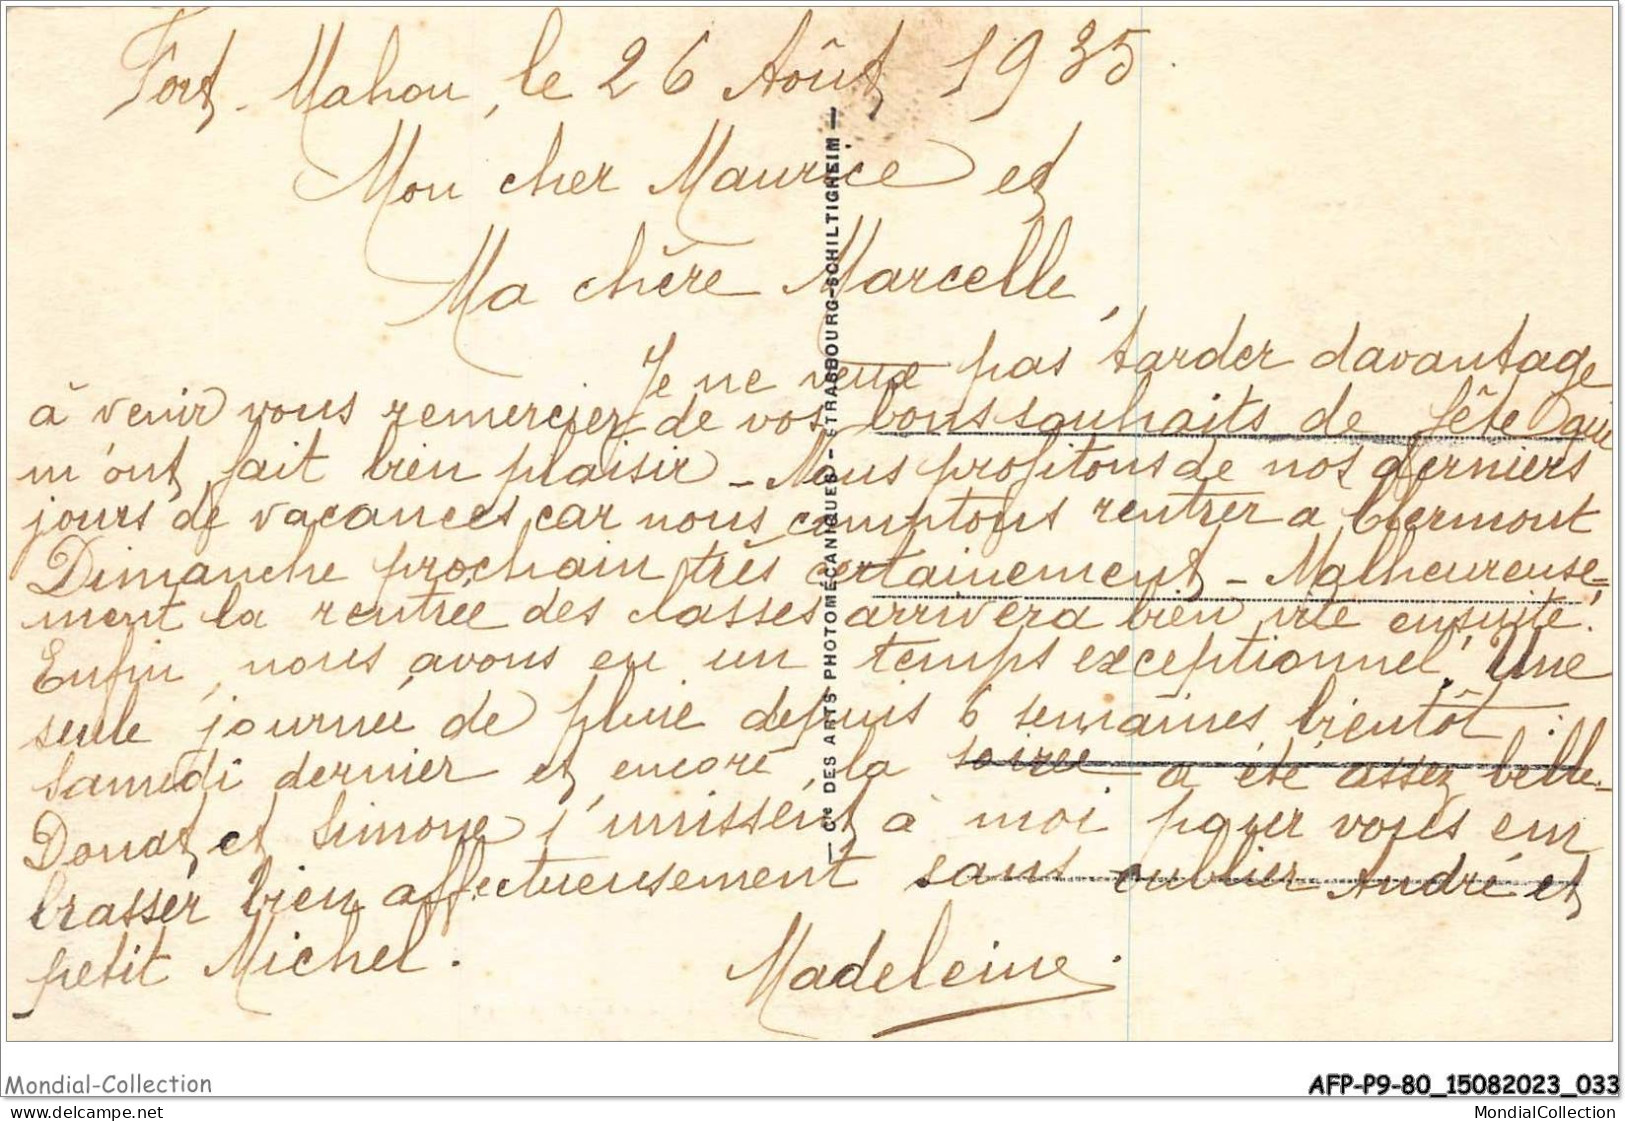 Fort-Mahon, le 26 Août 1935.
Mon cher Maurice et
Ma chère Marcelle,
Je ne veux pas tarder davantage
à venir vous remercier de vos bons souhaits de fête qui
m'ont fait bien plaisir - Nous profitons de nos derniers
jours de vacances, car nous comptons rentrer à Clermont
Dimanche prochain très certainement - Malheureuse-
ment la rentrée des classes arrivera bien vite ensuite.
Enfin, nous avons eu un temps exceptionnel. Une
seule journée de pluie depuis 6 semaines bientôt :
samedi dernier et encore la soirée a été assez belle.
Donat et Simone s'unissent à moi pour vous em
brasser bien affectueusement sans oublier André et
petit Michel.
Madeleine.
— Cie DES ARTS PHOTOMÉCANIQUES - STRASBOURG-SCHILTIGHEIM —
Mondial-Collection
AFP-P9-80_15082023_033
© akpool.de
MondialCollection